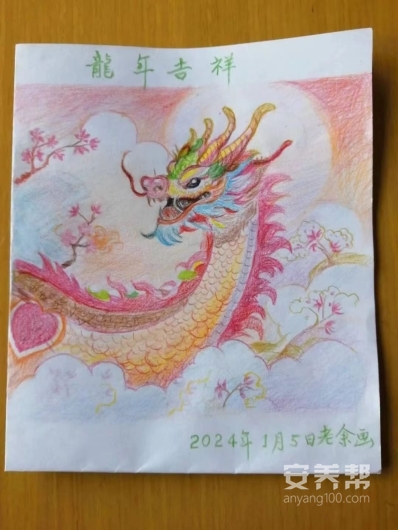 龍年吉祥
2024年1月5日老余画
安养帮
anyang100.com